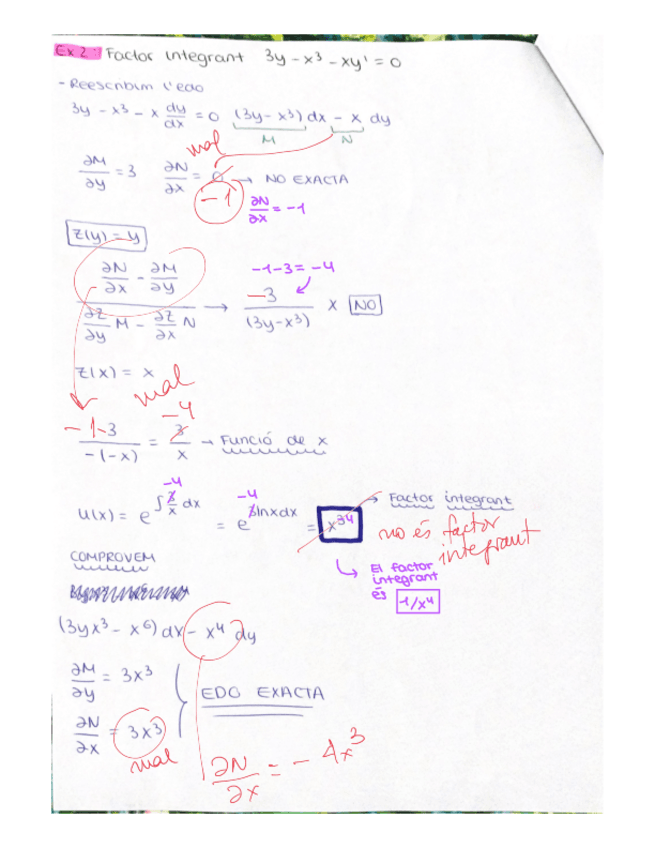 Ex 2: Factor integrant 3y - x³ - xy' = 0
- Reescribim l'edo
3y - x³ - x dy/dx = 0 (3y - x³) dx - x dy
M N
mal
∂M/∂y = 3 ∂N/∂x = 0 → NO EXACTA
-1 ∂N/∂x = -1
z(y) = y
∂N/∂x - ∂M/∂y -1-3 = -4
∂z/∂y M - ∂z/∂x N → -3/(3y-x³) x NO
z(x) = x
mal
-4
-1-3/-1(-x) = 3/x → Funció de x
-4 -4
u(x) = e^∫3/x dx = e^3lnxdx = x³4 → Factor integrant
no és factor integrant
COMPROVEM
↳ El factor
integrant
és -1/x⁴
(3yx³ - x⁶) dx - x⁴ dy
∂M/∂y = 3x³
EDO EXACTA
∂N/∂x = 3x³
mal
∂N/∂x = - 4x³